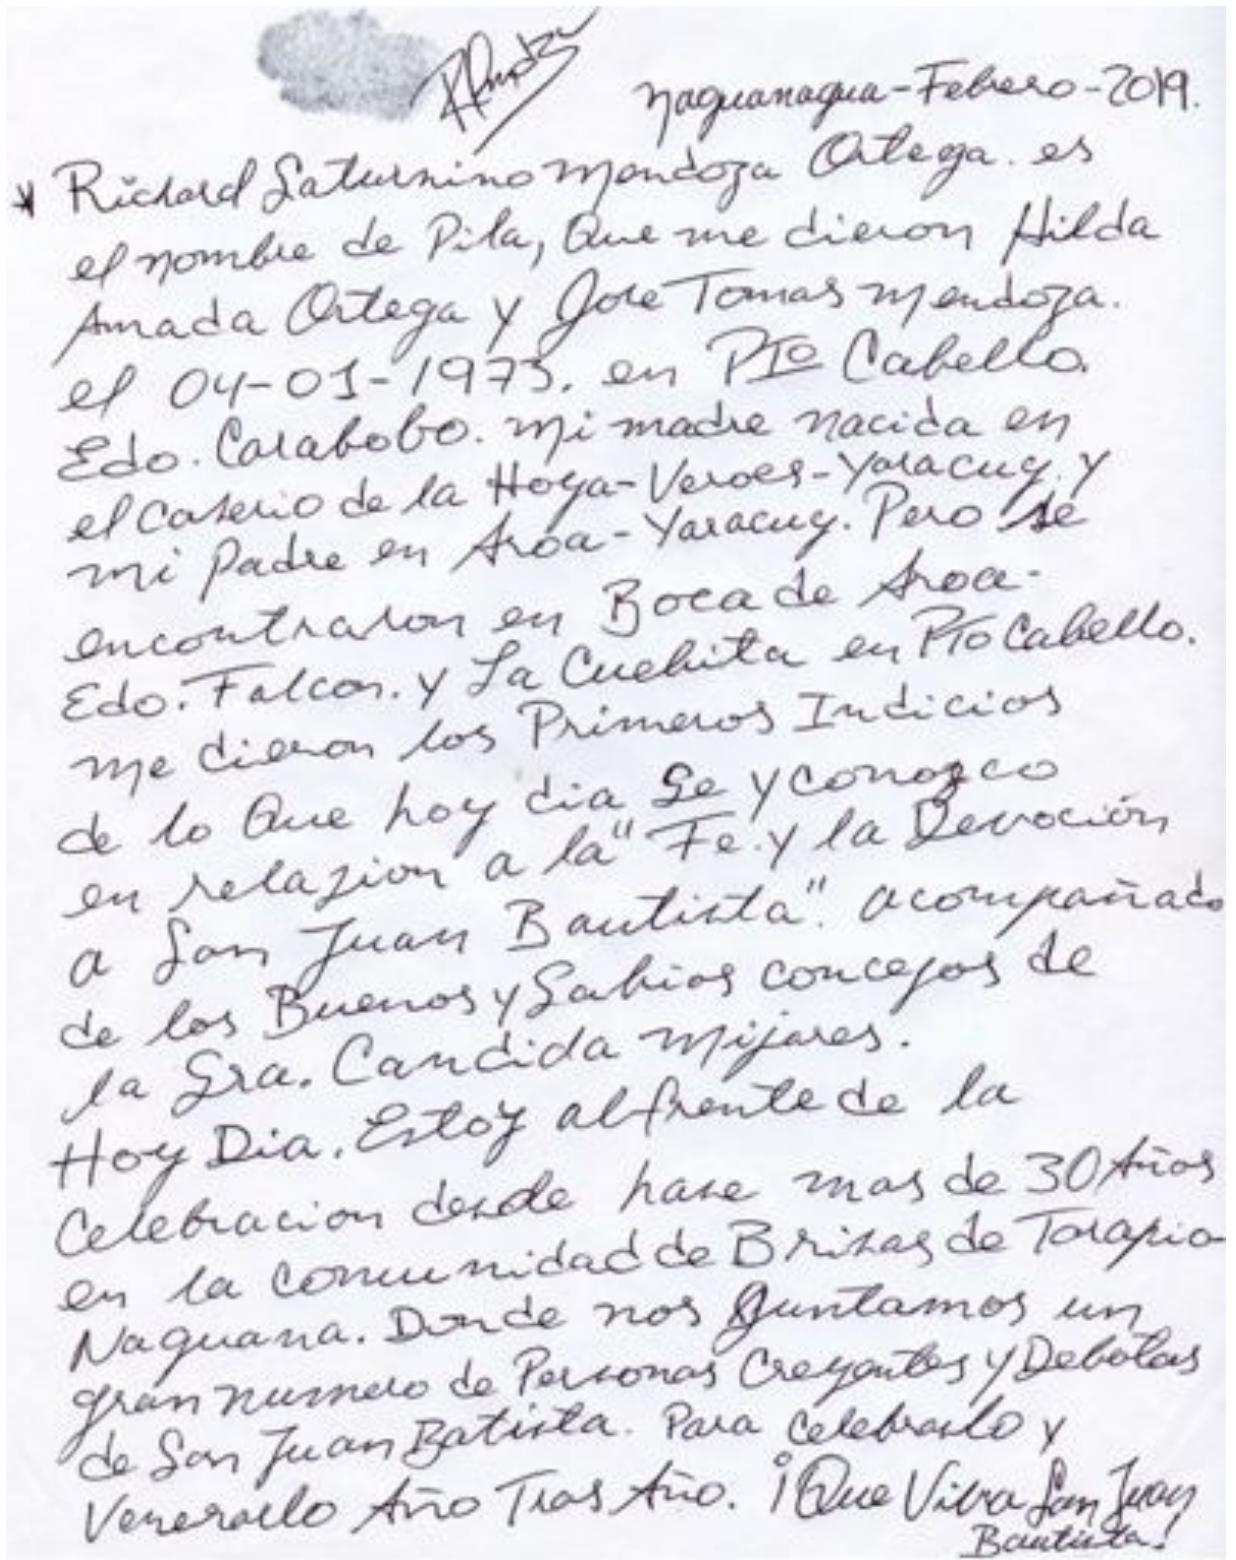 Naguanagua-Febrero-2019.
Richard Saturnino Mendoza Ortega. es
el nombre de Pila, Que me dieron Hilda
Amada Ortega y Jose Tomas Mendoza.
el 04-01-1973. en Pto Cabello.
Edo. Carabobo. mi madre nacida en
el caserio de la Hoya-Veroes-Yaracuy. y
mi Padre en Aroa-Yaracuy. Pero se
encontraron en Boca de Aroa-
Edo. Falcon. y La Cuebita en Pto Cabello.
me dieron los Primeros Indicios
de lo Que hoy dia Se y conozco
en relazion a la "Fe. y la Devoción
a San Juan Bautista". acompañado
de los Buenos y Sabios concejos de
la Sra. Candida Mijares.
Hoy Dia. Estoy al frente de la
Celebracion desde hase mas de 30 Años
en la comunidad de Brisas de Tarapio
Naguana. Donde nos Juntamos un
gran numero de Personas Creyentes y Debotas
de San Juan Batista. Para celebrarlo y
Venerarlo Año Tras Año. ¡Que Viva San Juan
Bautista!